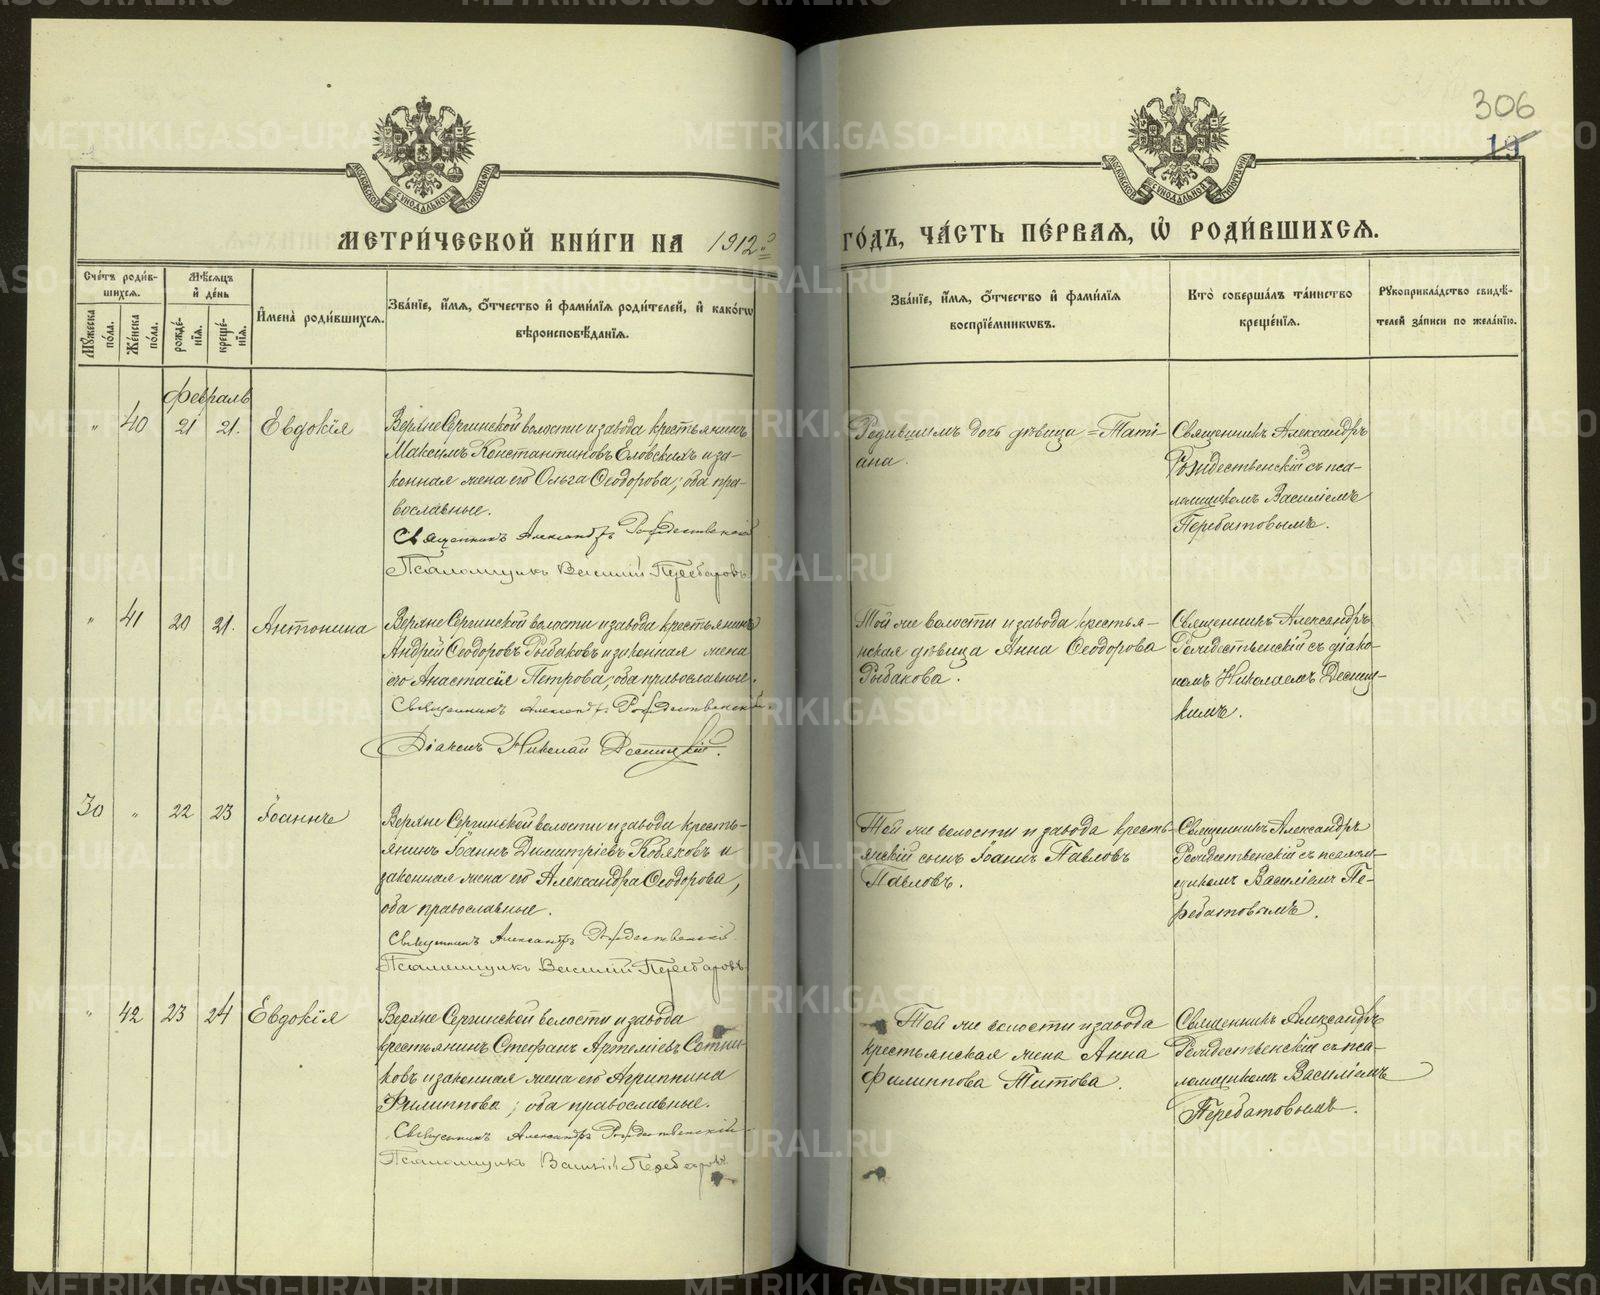 306
19
МОСКОВСКОЙ СѴНОДАЛЬНОЙ ТИПОГРАФІИ
МОСКОВСКОЙ СѴНОДАЛЬНОЙ ТИПОГРАФІИ
МЕТРИ́ЧЕСКОЙ КНИ́ГИ НА 1912 ГО́ДЪ, ЧА́СТЬ ПЕ́РВАѦ, Ѡ҆ РОДИ́ВШИХСѦ.
Сче́тъ роди́в-
шихсѧ.
Мꙋжеска по́ла.
Же́нска по́ла.
Мѣ́сѧцъ
и҆ де́нь
рожде́-
нїѧ.
креще́-
нїѧ.
И҆мена̀ роди́вшихсѧ.
Зва́нїе, и҆́мѧ, ѻ҆́тчество и҆ фами́лїѧ роди́телей, и҆ како́гѡ
вѣроисповѣ́данїѧ.
Зва́нїе, и҆́мѧ, ѻ҆́тчество и҆ фами́лїѧ
воспрїе́мникѡвъ.
Кто̀ соверша́лъ та́инство
креще́нїѧ.
Рꙋкоприкла́дство свидѣ́-
телей за́писи по жела́нїю.
Февраль
" 40 21 21. Евдокія
Верхне Сергинской волости и завода крестьянинъ
Максимъ Константиновъ Еловскихъ и за-
конная жена его Ольга Ѳеодорова, оба пра-
вославные.
Священникъ Александръ Рождественскій
Псаломщикъ Василій Перебатовъ
Родившимъ дочь дѣвица = Тати-
ана.
Священникъ Александръ
Рождественскій съ пса-
ломщикомъ Василіемъ
Перебатовымъ.
" 41 20 21. Антонина
Верхне Сергинской волости и завода крестьянинъ
Андрей Ѳеодоровъ Рыбаковъ и законная жена
его Анастасія Петрова, оба православные.
Священникъ Александръ Рождественскій
Діаконъ Николай Десницкій.
Той же волости и завода крестья-
нская дѣвица Анна Ѳеодорова
Рыбакова.
Священникъ Александръ
Рождественскій съ діако-
номъ Николаемъ Десниц-
кимъ.
30 " 22 23 Іоаннъ
Верхне Сергинской волости и завода кресть-
янинъ Іоаннъ Димитріевъ Кобяковъ и
законная жена его Александра Ѳеодорова,
оба православные.
Священникъ Александръ Рождественскій
Псаломщикъ Василій Перебатовъ
Той же волости и завода кресть-
янскій сынъ Іоаннъ Павловъ
Павловъ.
Священникъ Александръ
Рождественскій съ псалом-
щикомъ Василіемъ Пе-
ребатовымъ.
" 42 23 24 Евдокія
Верхне Сергинской волости и завода
крестьянинъ Стефанъ Артеміевъ Сотни-
ковъ и законная жена его Агриппина
Филиппова, оба православные.
Священникъ Александръ Рождественскій
Псаломщикъ Василій Перебатовъ
Той же волости и завода
крестьянская жена Анна
Филиппова Титова.
Священникъ Александръ
Рождественскій съ пса-
ломщикомъ Василіемъ
Перебатовымъ.
METRIKI.GASO-URAL.RU